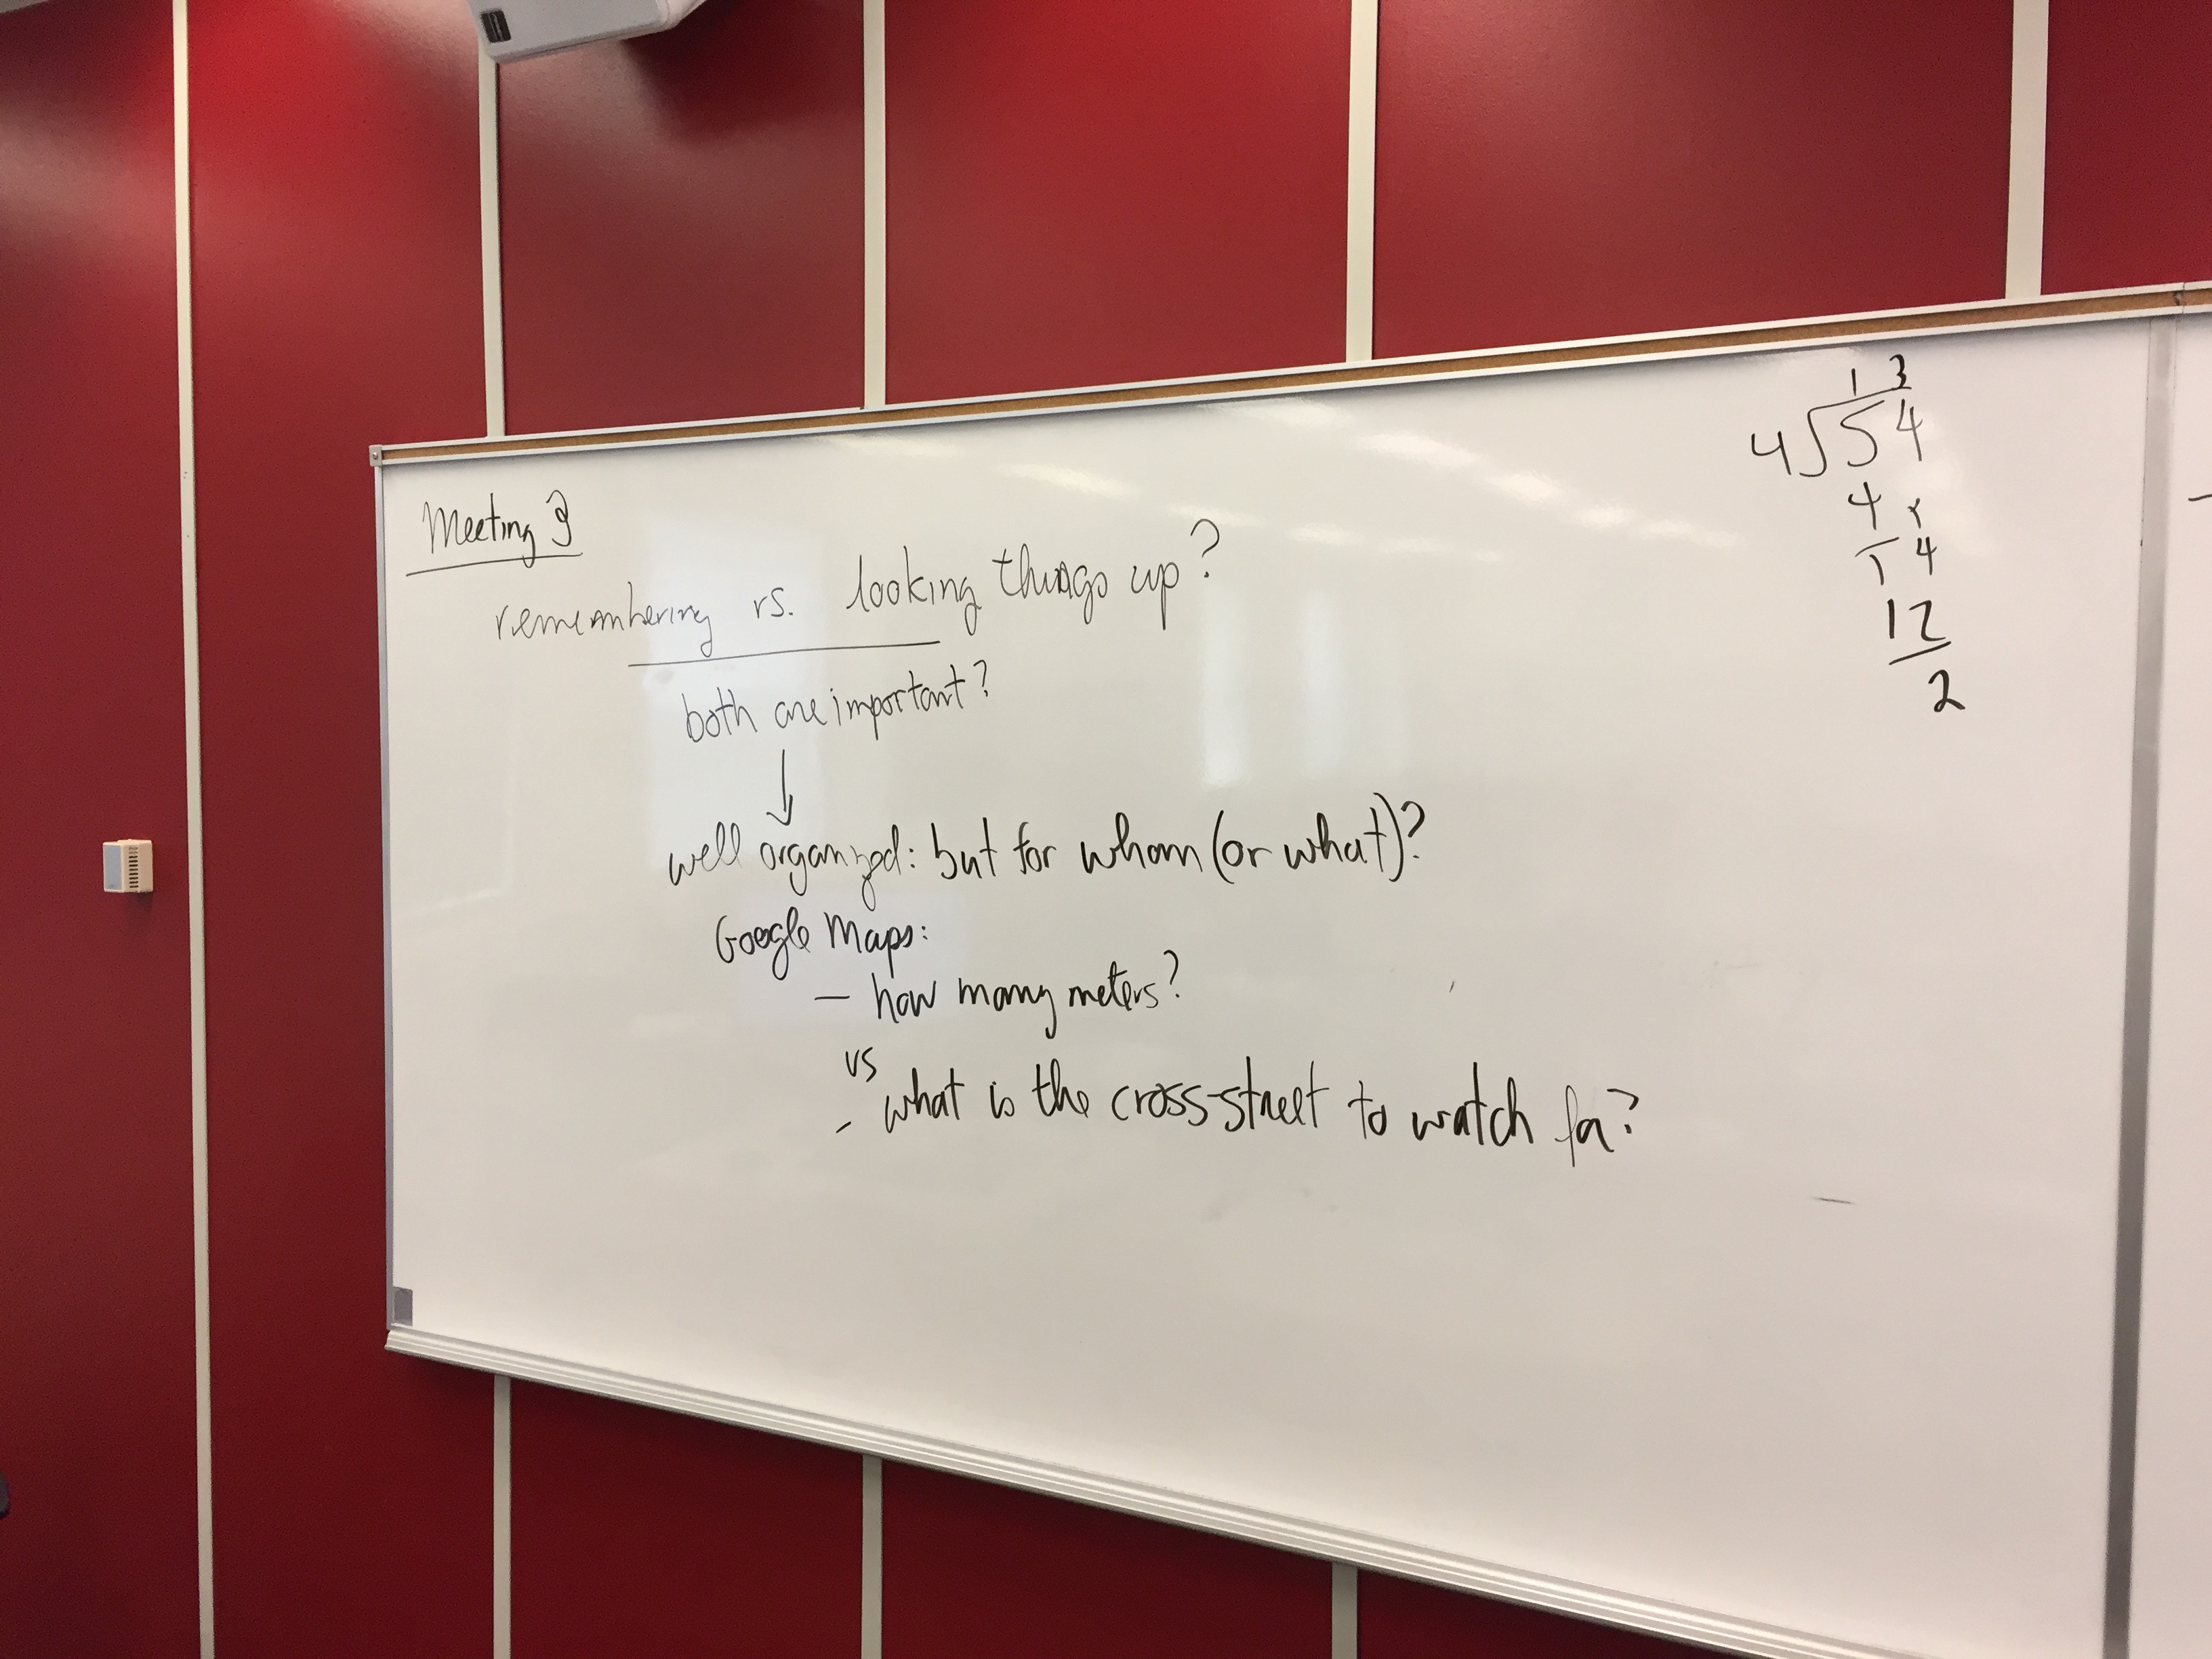 Meeting 3
remembering vs. looking things up?
both are important?
↓
well organized: but for whom (or what)?
Google Maps:
— how many meters?
vs
- what is the cross-street to watch for?
13
4 54
4
14
12
2